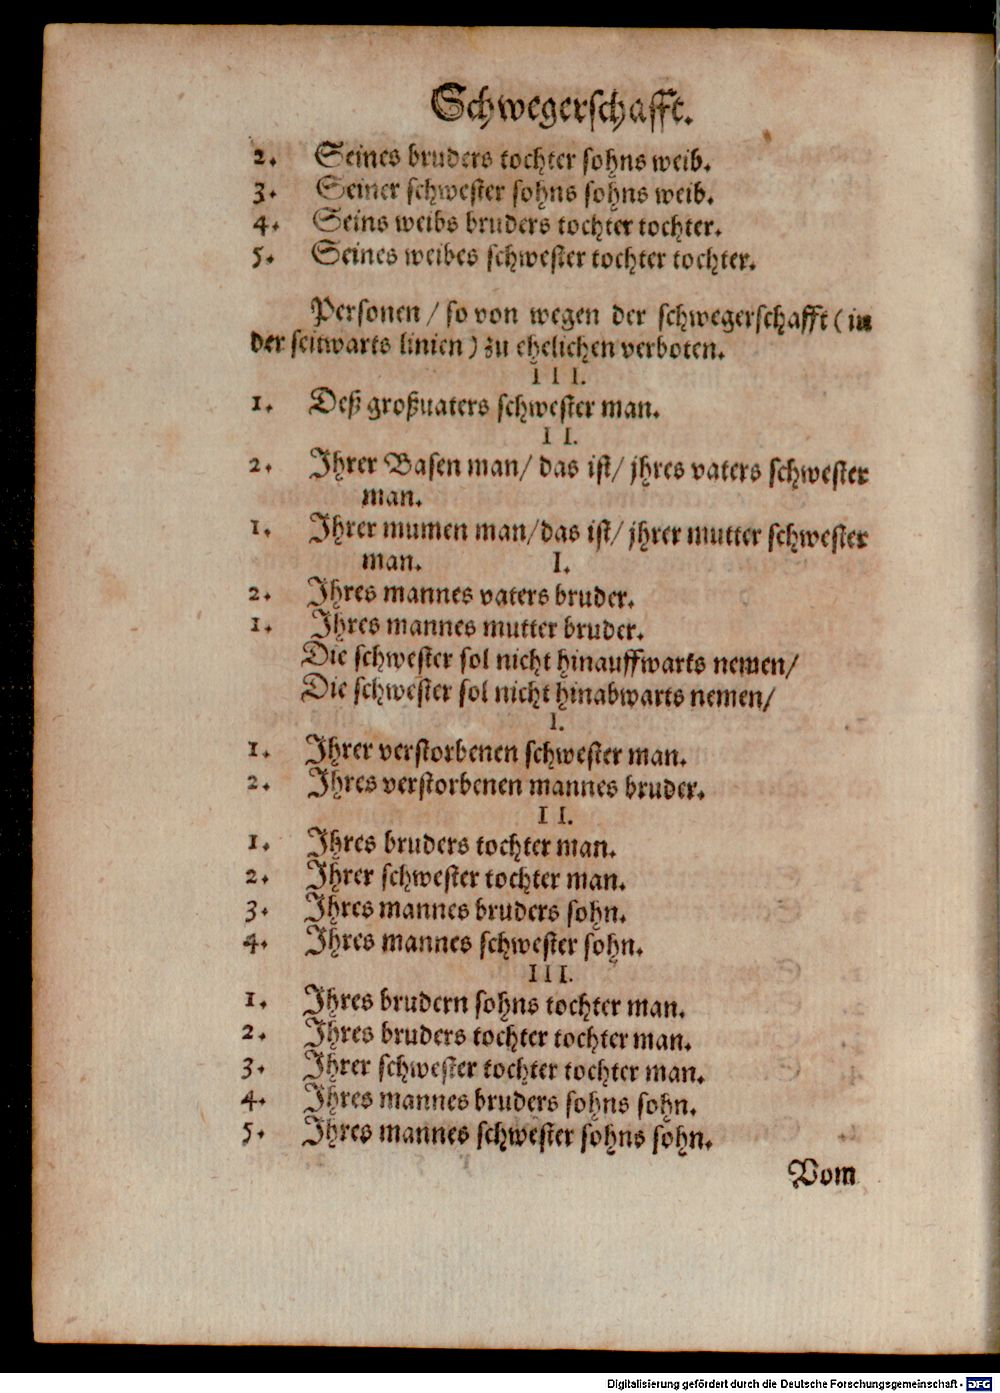 Schwegerschafft.
2. Seines bruders tochter sohns weib.
3. Seiner schwester sohns sohns weib.
4. Seins weibs bruders tochter tochter.
5. Seines weibes schwester tochter tochter.
Personen / so von wegen der schwegerschafft (in
der seitwarts linien) zu ehelichen verboten.
III.
1. Deß großuaters schwester man.
II.
2. Ihrer Basen man/ das ist/ jhres vaters schwester
man.
1. Ihrer mumen man/das ist/ jhrer mutter schwester
man. I.
2. Ihres mannes vaters bruder.
1. Ihres mannes mutter bruder.
Die schwester sol nicht hinauffwarts nemen/
Die schwester sol nicht hinabwarts nemen/
I.
1. Ihrer verstorbenen schwester man.
2. Ihres verstorbenen mannes bruder.
II.
1. Ihres bruders tochter man.
2. Ihrer schwester tochter man.
3. Ihres mannes bruders sohn.
4. Ihres mannes schwester sohn.
III.
1. Ihres brudern sohns tochter man.
2. Ihres bruders tochter tochter man.
3. Ihrer schwester tochter tochter man.
4. Ihres mannes bruders sohns sohn.
5. Ihres mannes schwester sohns sohn.
Vom
Digitalisierung gefördert durch die Deutsche Forschungsgemeinschaft - DFG